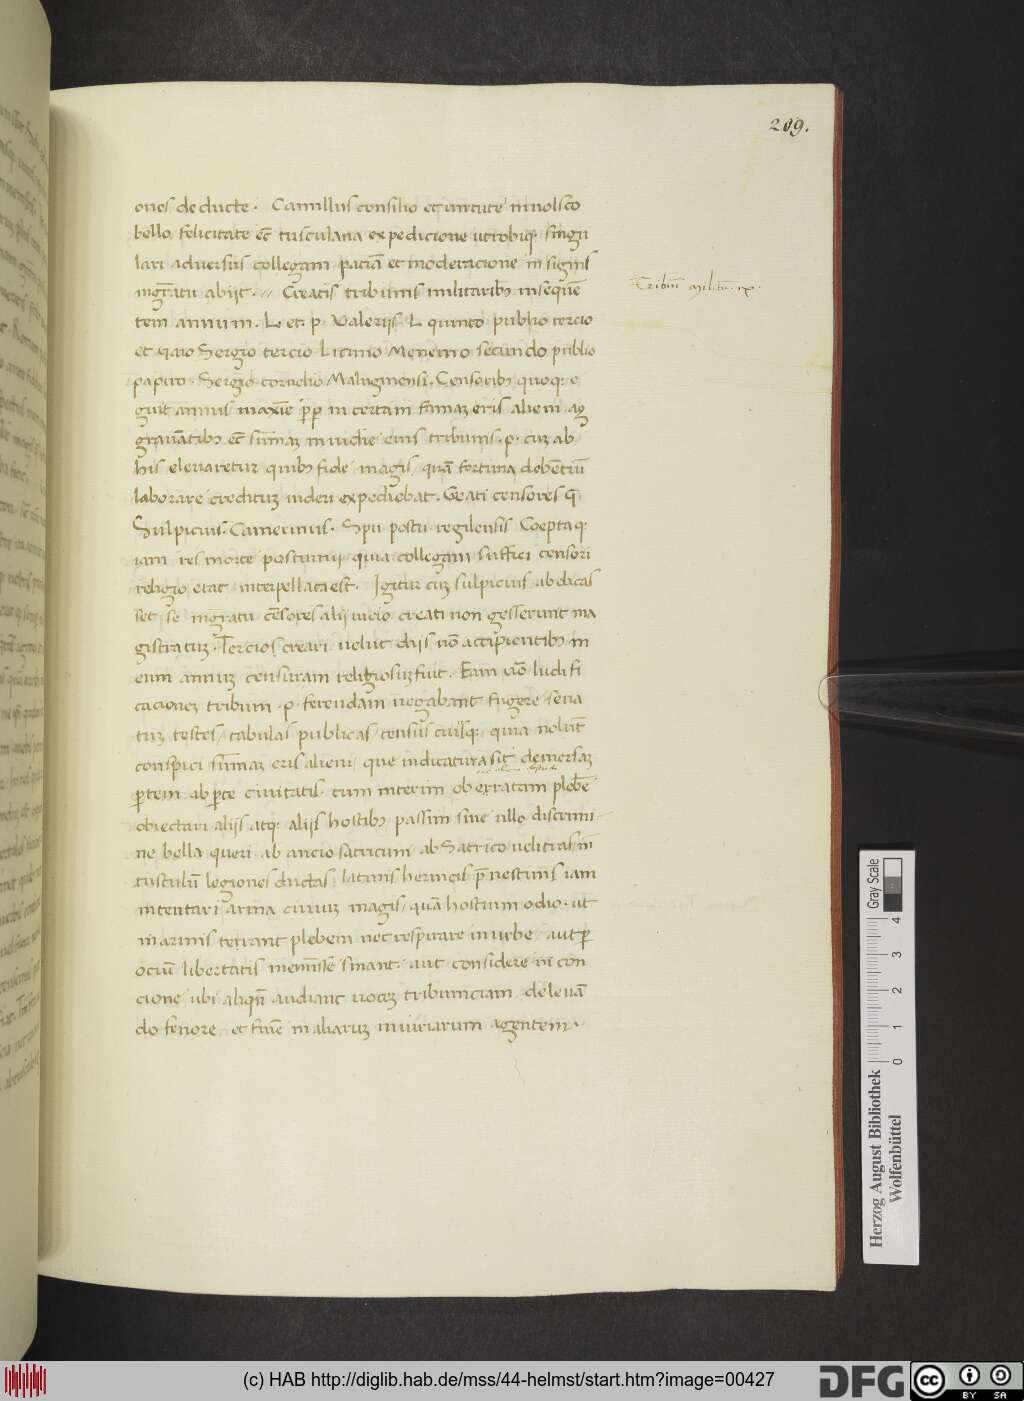 209.
ones deductę. Camillus consilio et uirtute in uolsco
bello felicitate et̄ tusculana expedicione utrobiq; singu
lari aduersus collegam paciā et moderacione in signis
mḡratu abijt. // Creatis tribunis militaribꝰ insequē
tem annum. L et. p. Valerijs. L quinto publio tercio
et Gaio Sergio tercio Licinio Menenio secundo publio
papirio. Sergio cornelio Maluginensi. Censoribꝰ quoq; e
guit annus maxīe p̄p incertam famaꝫ eris alieni ag
grauātibꝰ et̄ sum̄aꝫ inuidie eius tribunis. p. cuꝫ ab
his eleuaretur quibꝰ fide magis, quā fortuna debentiū
laborare credituꝫ uideri expediebat. Creati censores q̄
Sulpicius. Camerinus. Spu postu regilensis Coeptaq;
iam res morte postumii, quia collegam suffici censori
religio erat, interpellata est. Igitur cuꝫ sulpicius abdicas
set se mḡratu cēsores alij uicio creati non gesserunt ma
gistratuꝫ. Tercios creari uelut dijs nō accipientibꝰ in
eum annuꝫ censuram religiosuꝫ fuit. Eam uēo ludifi
cacioneꝫ tribuni .p. ferendam negabant fugere sena
tuꝫ testes, tabulas publicas, census cuiusq; quia nolūt
conspici sum̄aꝫ eris alieni, que indicatura sit demersaꝫ
ꝑtem ab ꝑte ciuitatis. cum interim obęratam plebē
obiectari alijs atq; alijs hostibꝰ passim sine ullo discrimi
ne bella queri ab ancio satricum ab Satrico uelitras, in̄
tusculū legiones ductas, latinis hernicis p̄nestinis iam
intentari arma ciuiuꝫ magis, quā hostium odio. ut
in armis terrant plebem nec respirare in urbe aut ꝑ
ociū libertatis meminisse sinant. aut considere in con
cione ubi aliqn̄ audiant uoceꝫ tribuniciam deleuā
do fenore et finē in aliaruꝫ iniuriarum agentem.
Tribuni militu ix.
Herzog August Bibliothek
Wolfenbüttel
Gray Scale
0 1 2 3 4
(c) HAB http://diglib.hab.de/mss/44-helmst/start.htm?image=00427
DFG
cc BY SA